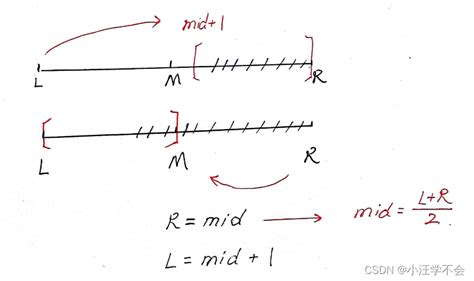 mid+1
L M R
L M R
R = mid → mid = L+R/2
L = mid + 1
CSDN @小汪学不会